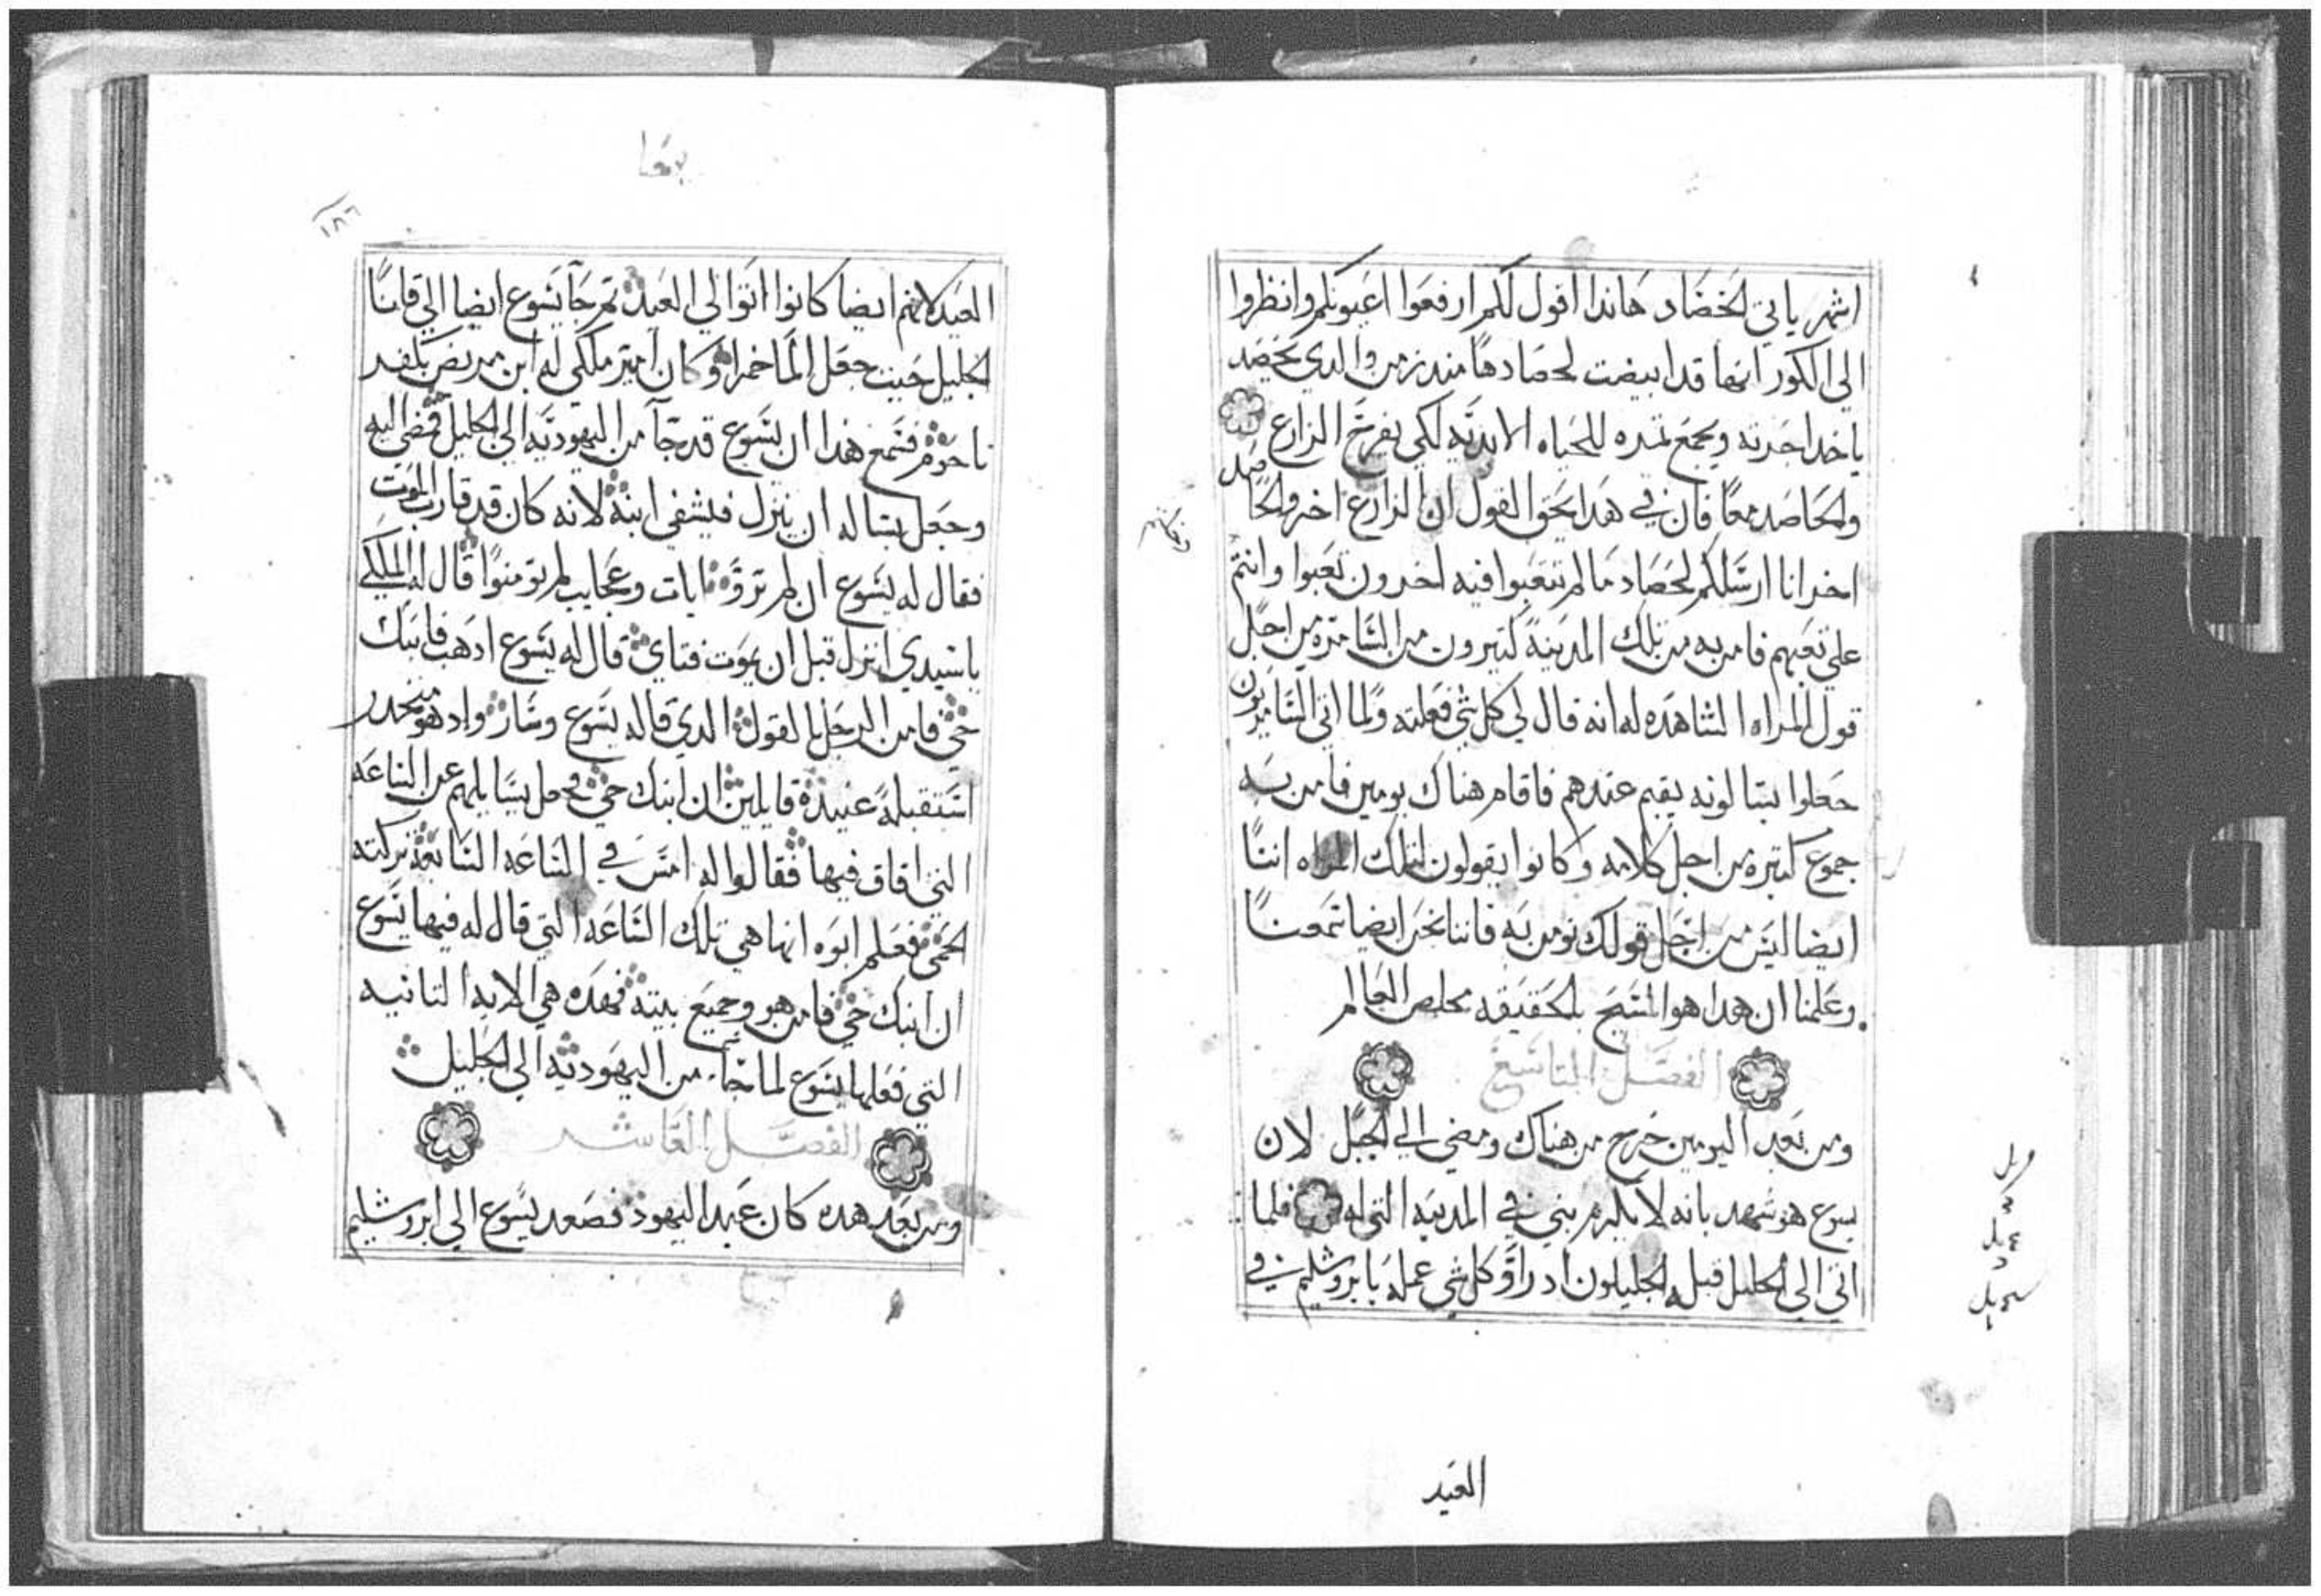 اشهر ياتي الحصاد هاندا اقول لكم ارفعوا اعيونكم وانظروا
الي الكور انها قد ابيضت لحصادها مند زمن والدي يحصد
ياخد اجرته ويجمع تمره للحياه الابديه لكي يفرح الزارع
والحاصد معا فان في هدا يحق القول ان الزارع اخر والحاصد
اخر انا ارسلكم لحصاد ما لم تتعبوا فيه اخرون تعبوا وانتم
علي تعبهم فامن به من تلك المدينة كتيرون من السامره من اجل
قول المراه الشاهده له انه قال لي كل شي فعلته ولما اتي السامريون
جعلوا يسالونه يقيم عندهم فاقام هناك يومين فامن به
جموع كتيره من اجل كلامه وكانوا يقولون لتلك المراه اننا
ايضا ليس من اجل قولك نومن به فاننا نحن ايضا سمعنا
وعلمنا ان هدا هو المسيح بالحقيقه مخلص العالم
الفصل التاسع
ومن بعد اليومين خرج من هناك ومضي الي الجبل لان
يسوع هو شهد بانه لا يكرم نبي في المدينه التي له فلما
اتي الي الجليل قبله الجليليون اد راوا كل شي عمله بايروشليم في
العيد
يوحنا
١٨٦
العيد لانهم ايضا كانوا اتوا الي العيد تم جا يسوع ايضا الي قانا
الجليل حيت جعل الما خمرا وكان امير ملكي له ابن مريض بكفر
ناحوم فسمع هذا ان يسوع قد جا من اليهوديه الي الجليل فمضي اليه
وجعل يساله ان ينزل فيشفي ابنه لانه كان قد قارب الموت
فقال له يسوع ان لم تروا ايات وعجايب لم تومنوا قال له الملكي
ياسيدي انزل قبل ان يموت فتاي قال له يسوع ادهب فابنك
حي فامن الرجل بالقول الدي قاله يسوع وسار واد هو منحدر
استقبله عبيده قايلين ان ابنك حي فجعل يسايلهم عن الساعه
التي افاق فيها فقالوا له امس في الساعه السابعه تركته
الحمي فعلم ابوه انها هي تلك الساعه التي قال له فيها يسوع
ان ابنك حي فامن هو وجميع بيته فهده هي الايه التانيه
التي فعلها يسوع لما جا من اليهوديه الي الجليل
الفصل العاشر
ومن بعد هده كان عيد اليهود فصعد يسوع الي ايروشليم